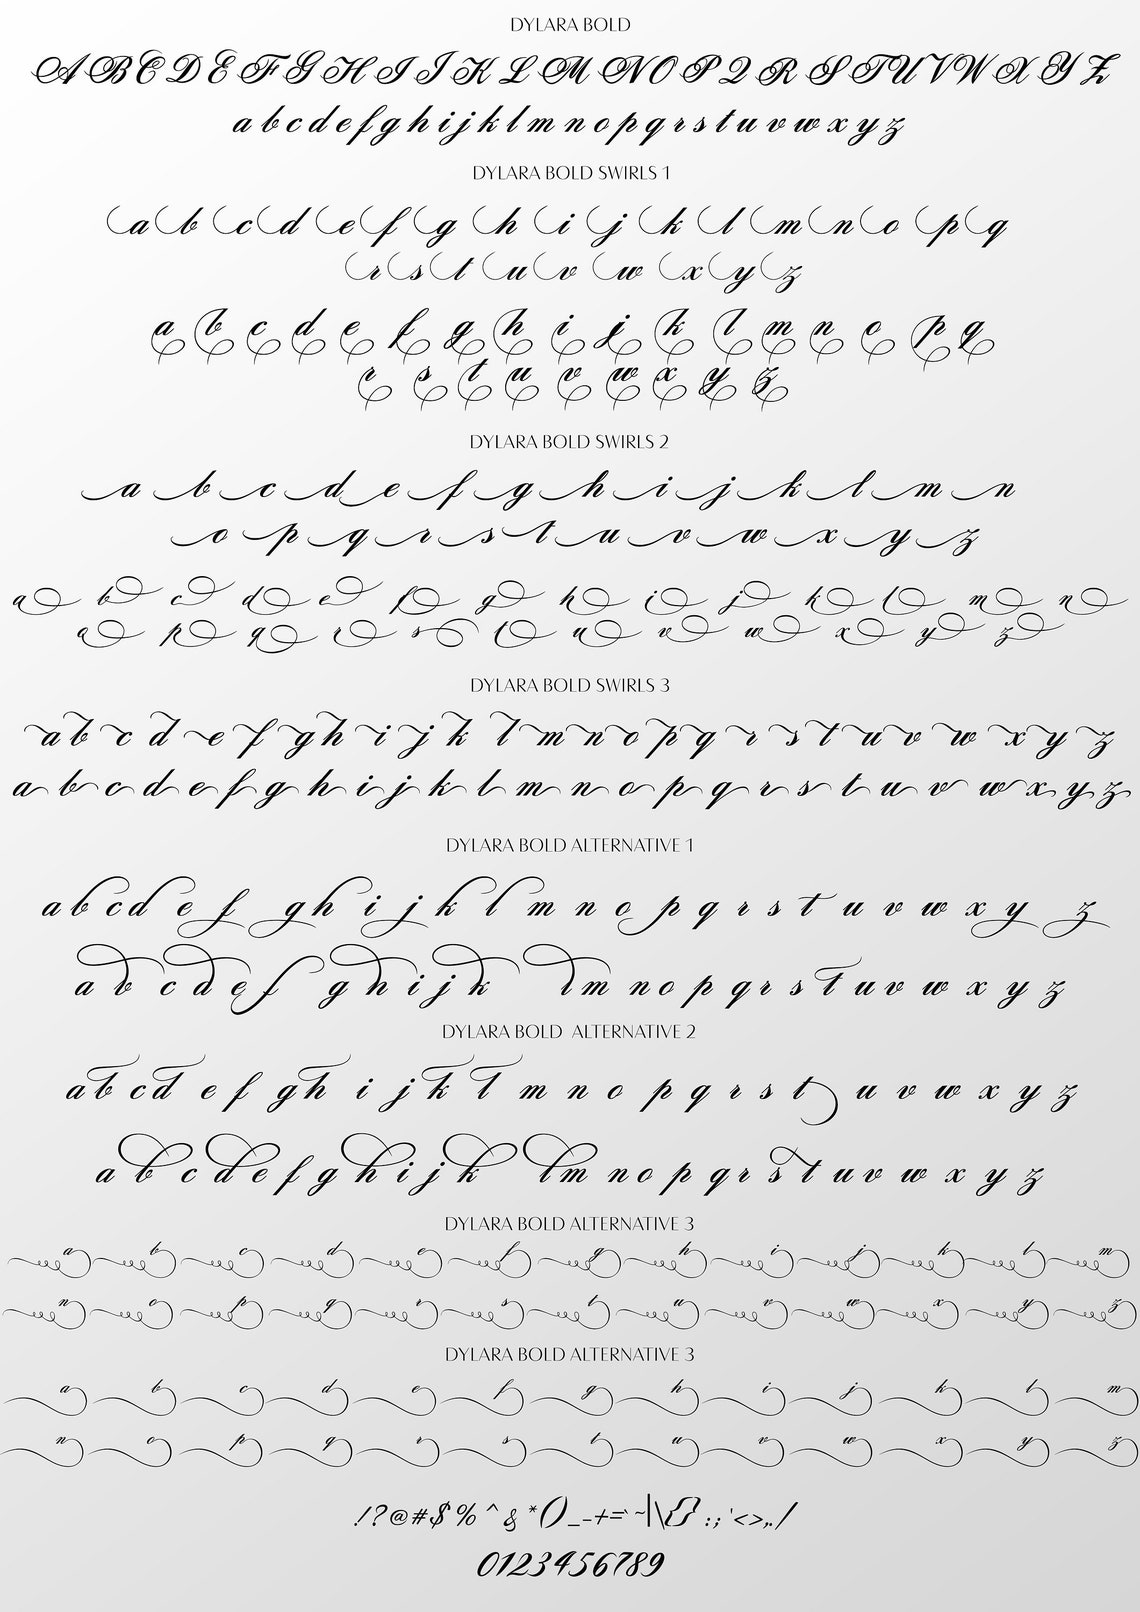 DYLARA BOLD
A B C D E F G H I J K L M N O P Q R S T U V W X Y Z
a b c d e f g h i j k l m n o p q r s t u v w x y z
DYLARA BOLD SWIRLS 1
a b c d e f g h i j k l m n o p q
r s t u v w x y z
a b c d e f g h i j k l m n o p q
r s t u v w x y z
DYLARA BOLD SWIRLS 2
a b c d e f g h i j k l m n
o p q r s t u v w x y z
a b c d e f g h i j k l m n
o p q r s t u v w x y z
DYLARA BOLD SWIRLS 3
a b c d e f g h i j k l m n o p q r s t u v w x y z
a b c d e f g h i j k l m n o p q r s t u v w x y z
DYLARA BOLD ALTERNATIVE 1
a b c d e f g h i j k l m n o p q r s t u v w x y z
a b c d e f g h i j k l m n o p q r s t u v w x y z
DYLARA BOLD ALTERNATIVE 2
a b c d e f g h i j k l m n o p q r s t u v w x y z
a b c d e f g h i j k l m n o p q r s t u v w x y z
DYLARA BOLD ALTERNATIVE 3
a b c d e f g h i j k l m
n o p q r s t u v w x y z
DYLARA BOLD ALTERNATIVE 3
a b c d e f g h i j k l m
n o p q r s t u v w x y z
!?@#$%^&*()_-+=`~|\{}:;'<>,./
0123456789